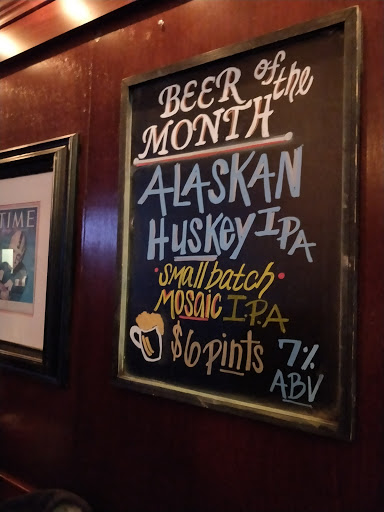 TIME
BEER of the
MONTH
ALASKAN
HUSKEY IPA
• small batch •
MOSAIC I.P.A
$6 pints
7%
ABV